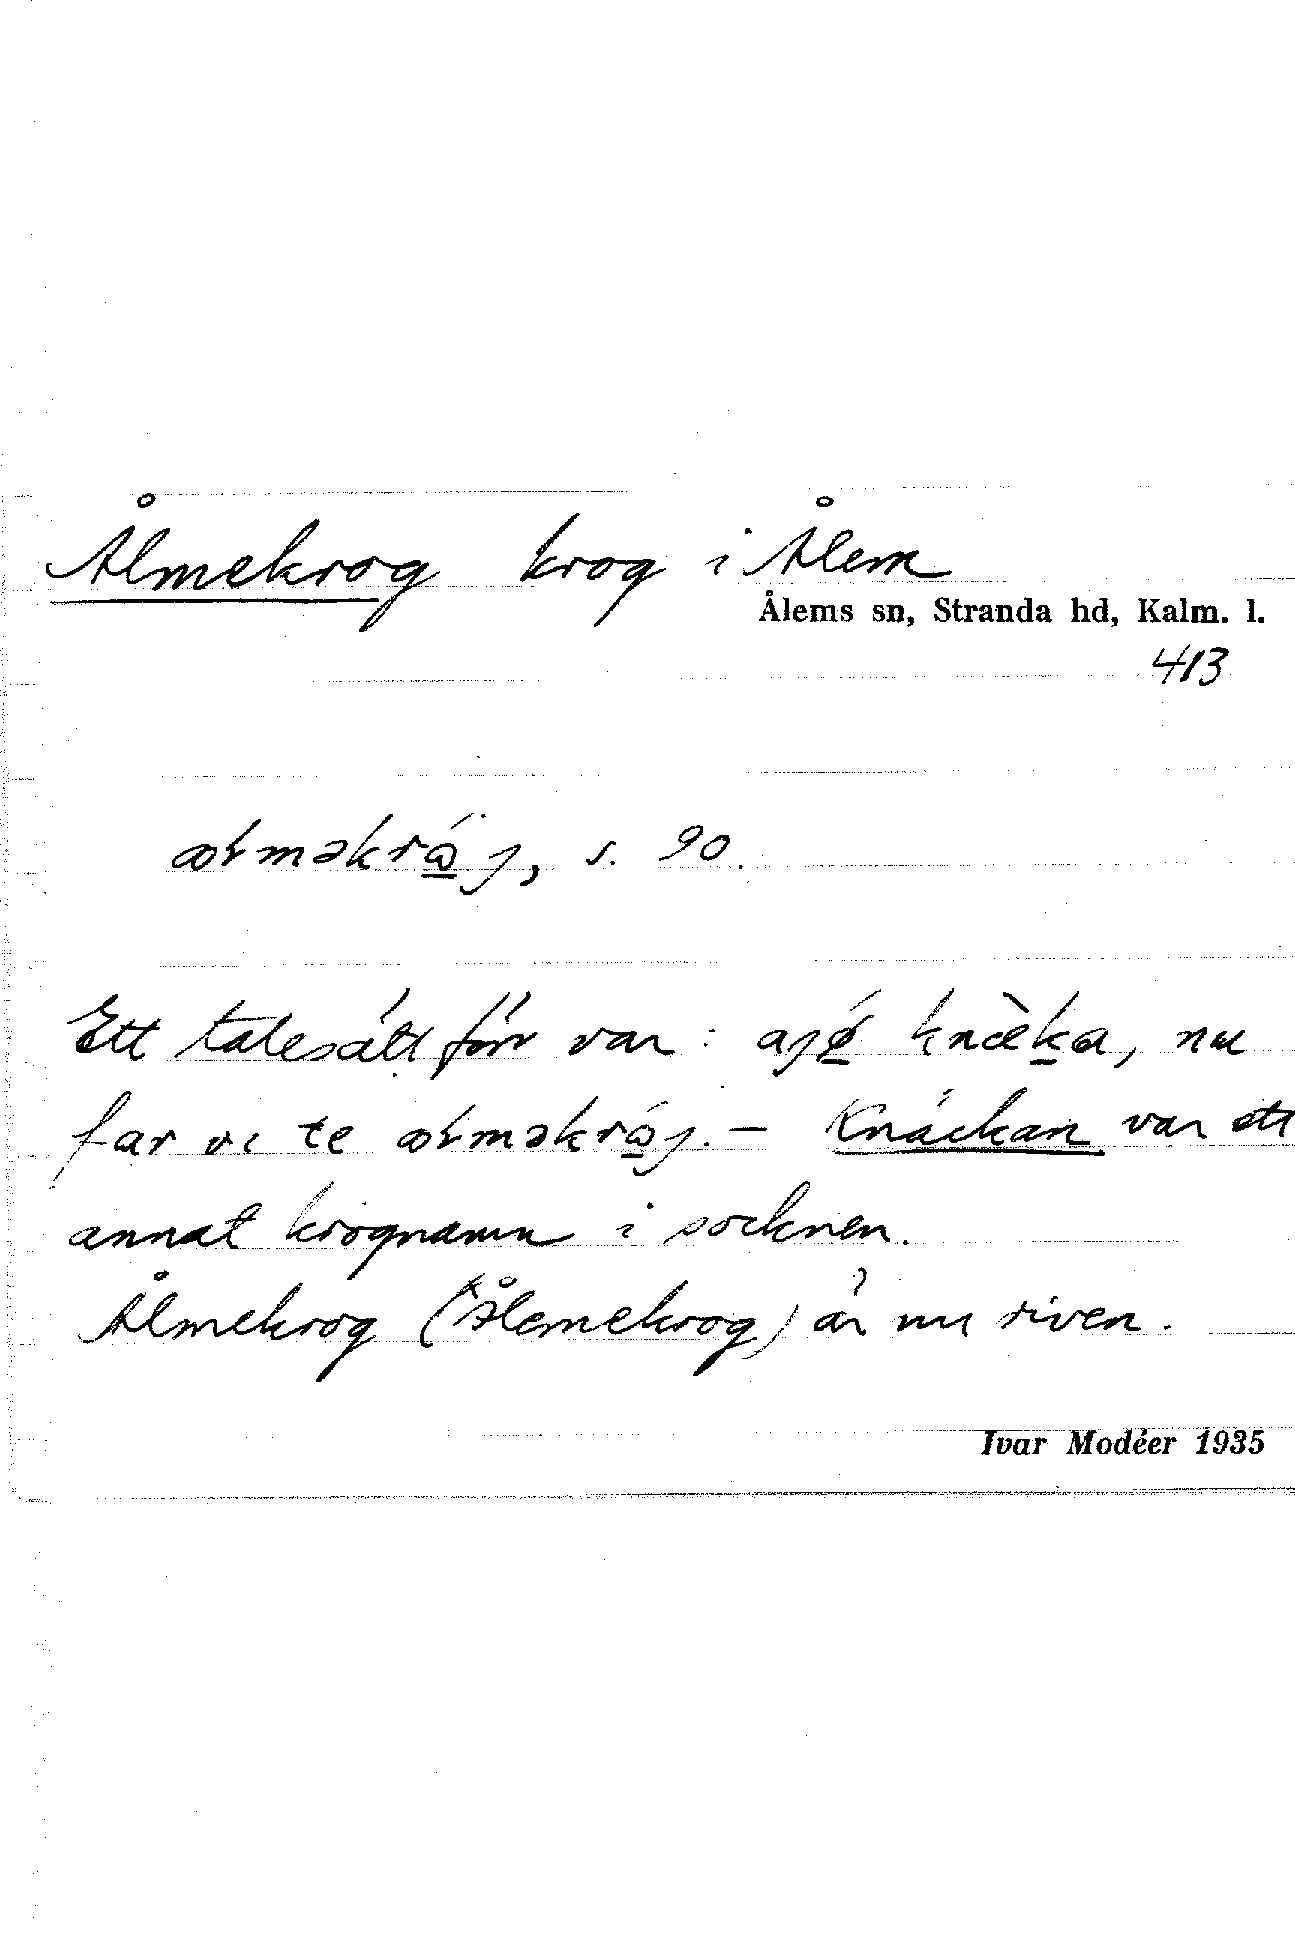 Ålmekrog krog i Ålem
Ålems sn, Stranda hd, Kalm. l.
413
s. 90.
Ett talesätt förr var: knæka, nu
far vi te – Knäckan var ett
annat krognamn i socknen.
Ålmekrog (Ålemekrog) är nu riven.
Ivar Modéer 1935